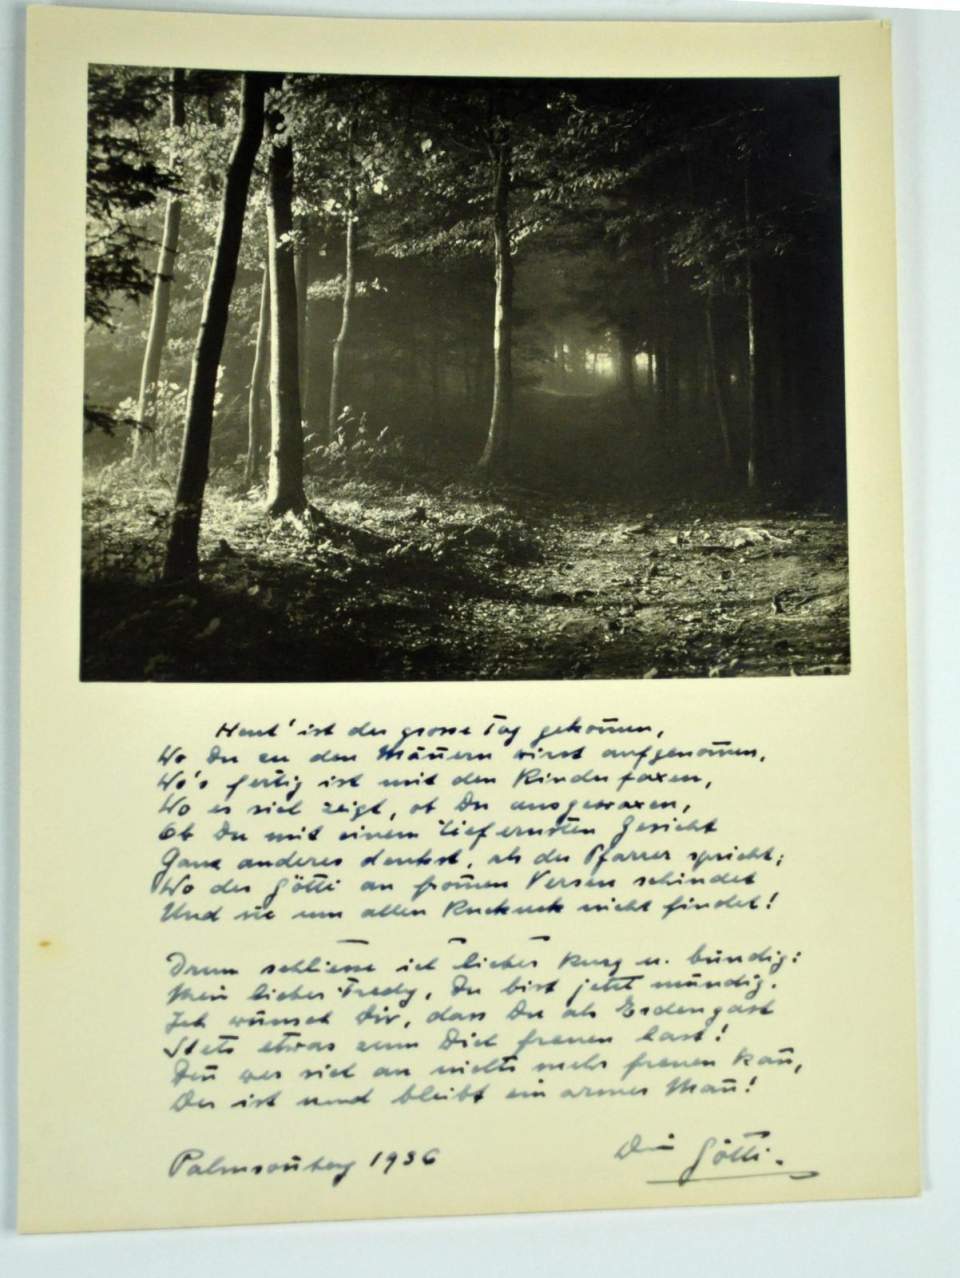 Heut' ist der grosse Tag gekom̄en,
Wo Du zu den Män̄ern wirst aufgenom̄en,
Wo's fertig ist mit den Kinderfaxen,
Wo es sich zeigt, ob Du ausgewaxen,
Ob Du mit einem tief ernsten Gesicht
Ganz anderes denkst, als der Pfarrer spricht;
Wo der Götti an from̄en Versen schindet
Und sie um allen Kuckuck nicht findet!
Drum schliesse ich lieber kurz u. bündig:
Mein lieber Fredy, Du bist jetzt mündig.
Ich wünsch Dir, dass Du als Erdengast
Stets etwas zum Dich freuen hast!
Den̄ wer sich an nichts mehr freuen kan̄,
Der ist und bleibt ein armer Man̄!
Palmson̄tag 1936
Dein Götti.